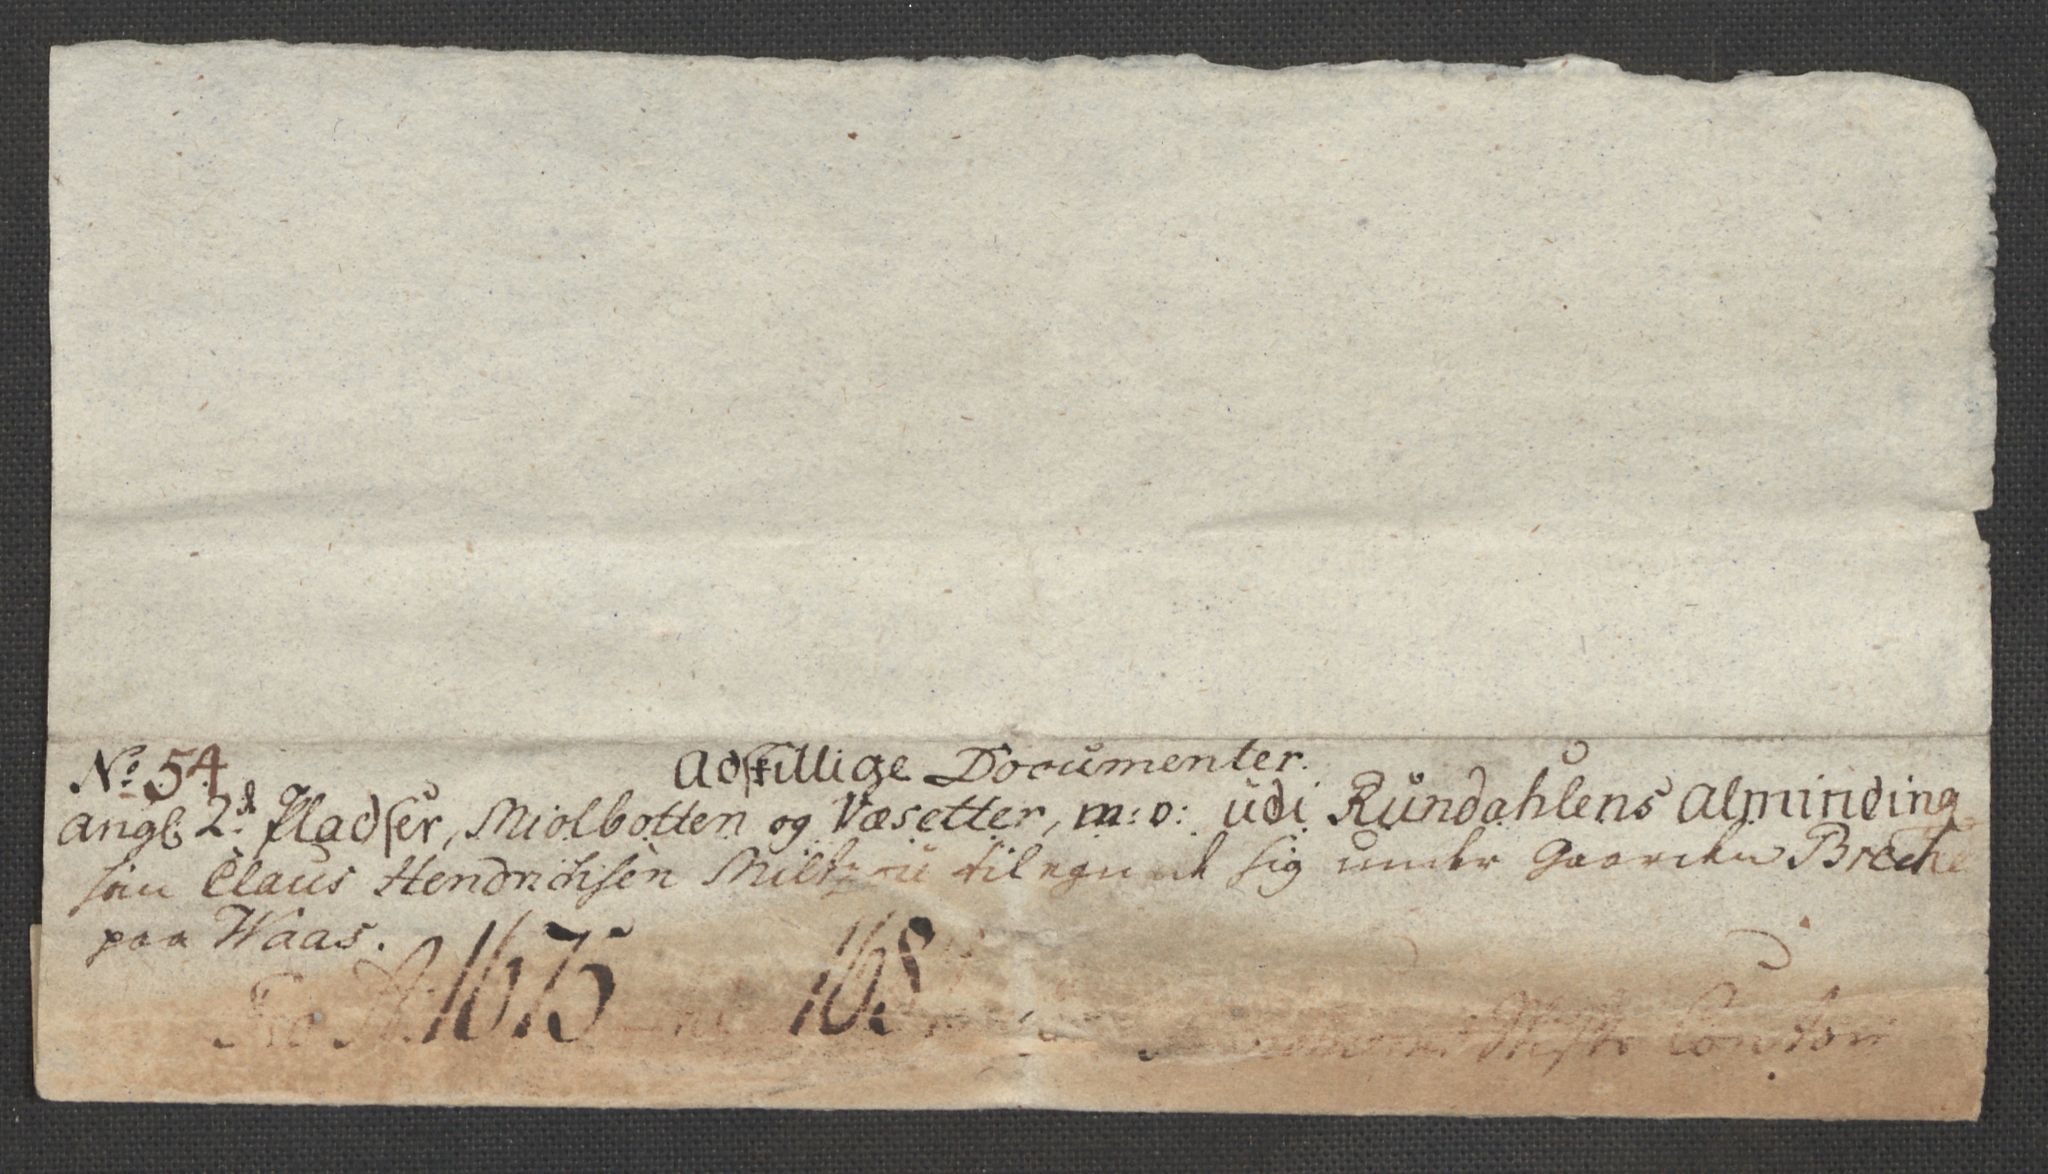 No. 54
Adskillige Documenter.
angl. 2de Pladser, Miolbotten og Væsetter, m: v: udi Rundahlens Alminding
som Claus Hendrichsen Miltzou tilegnede sig under Gaarden Breche
paa Waas.
Fra Ao. 1675 168 Stifts Contoir